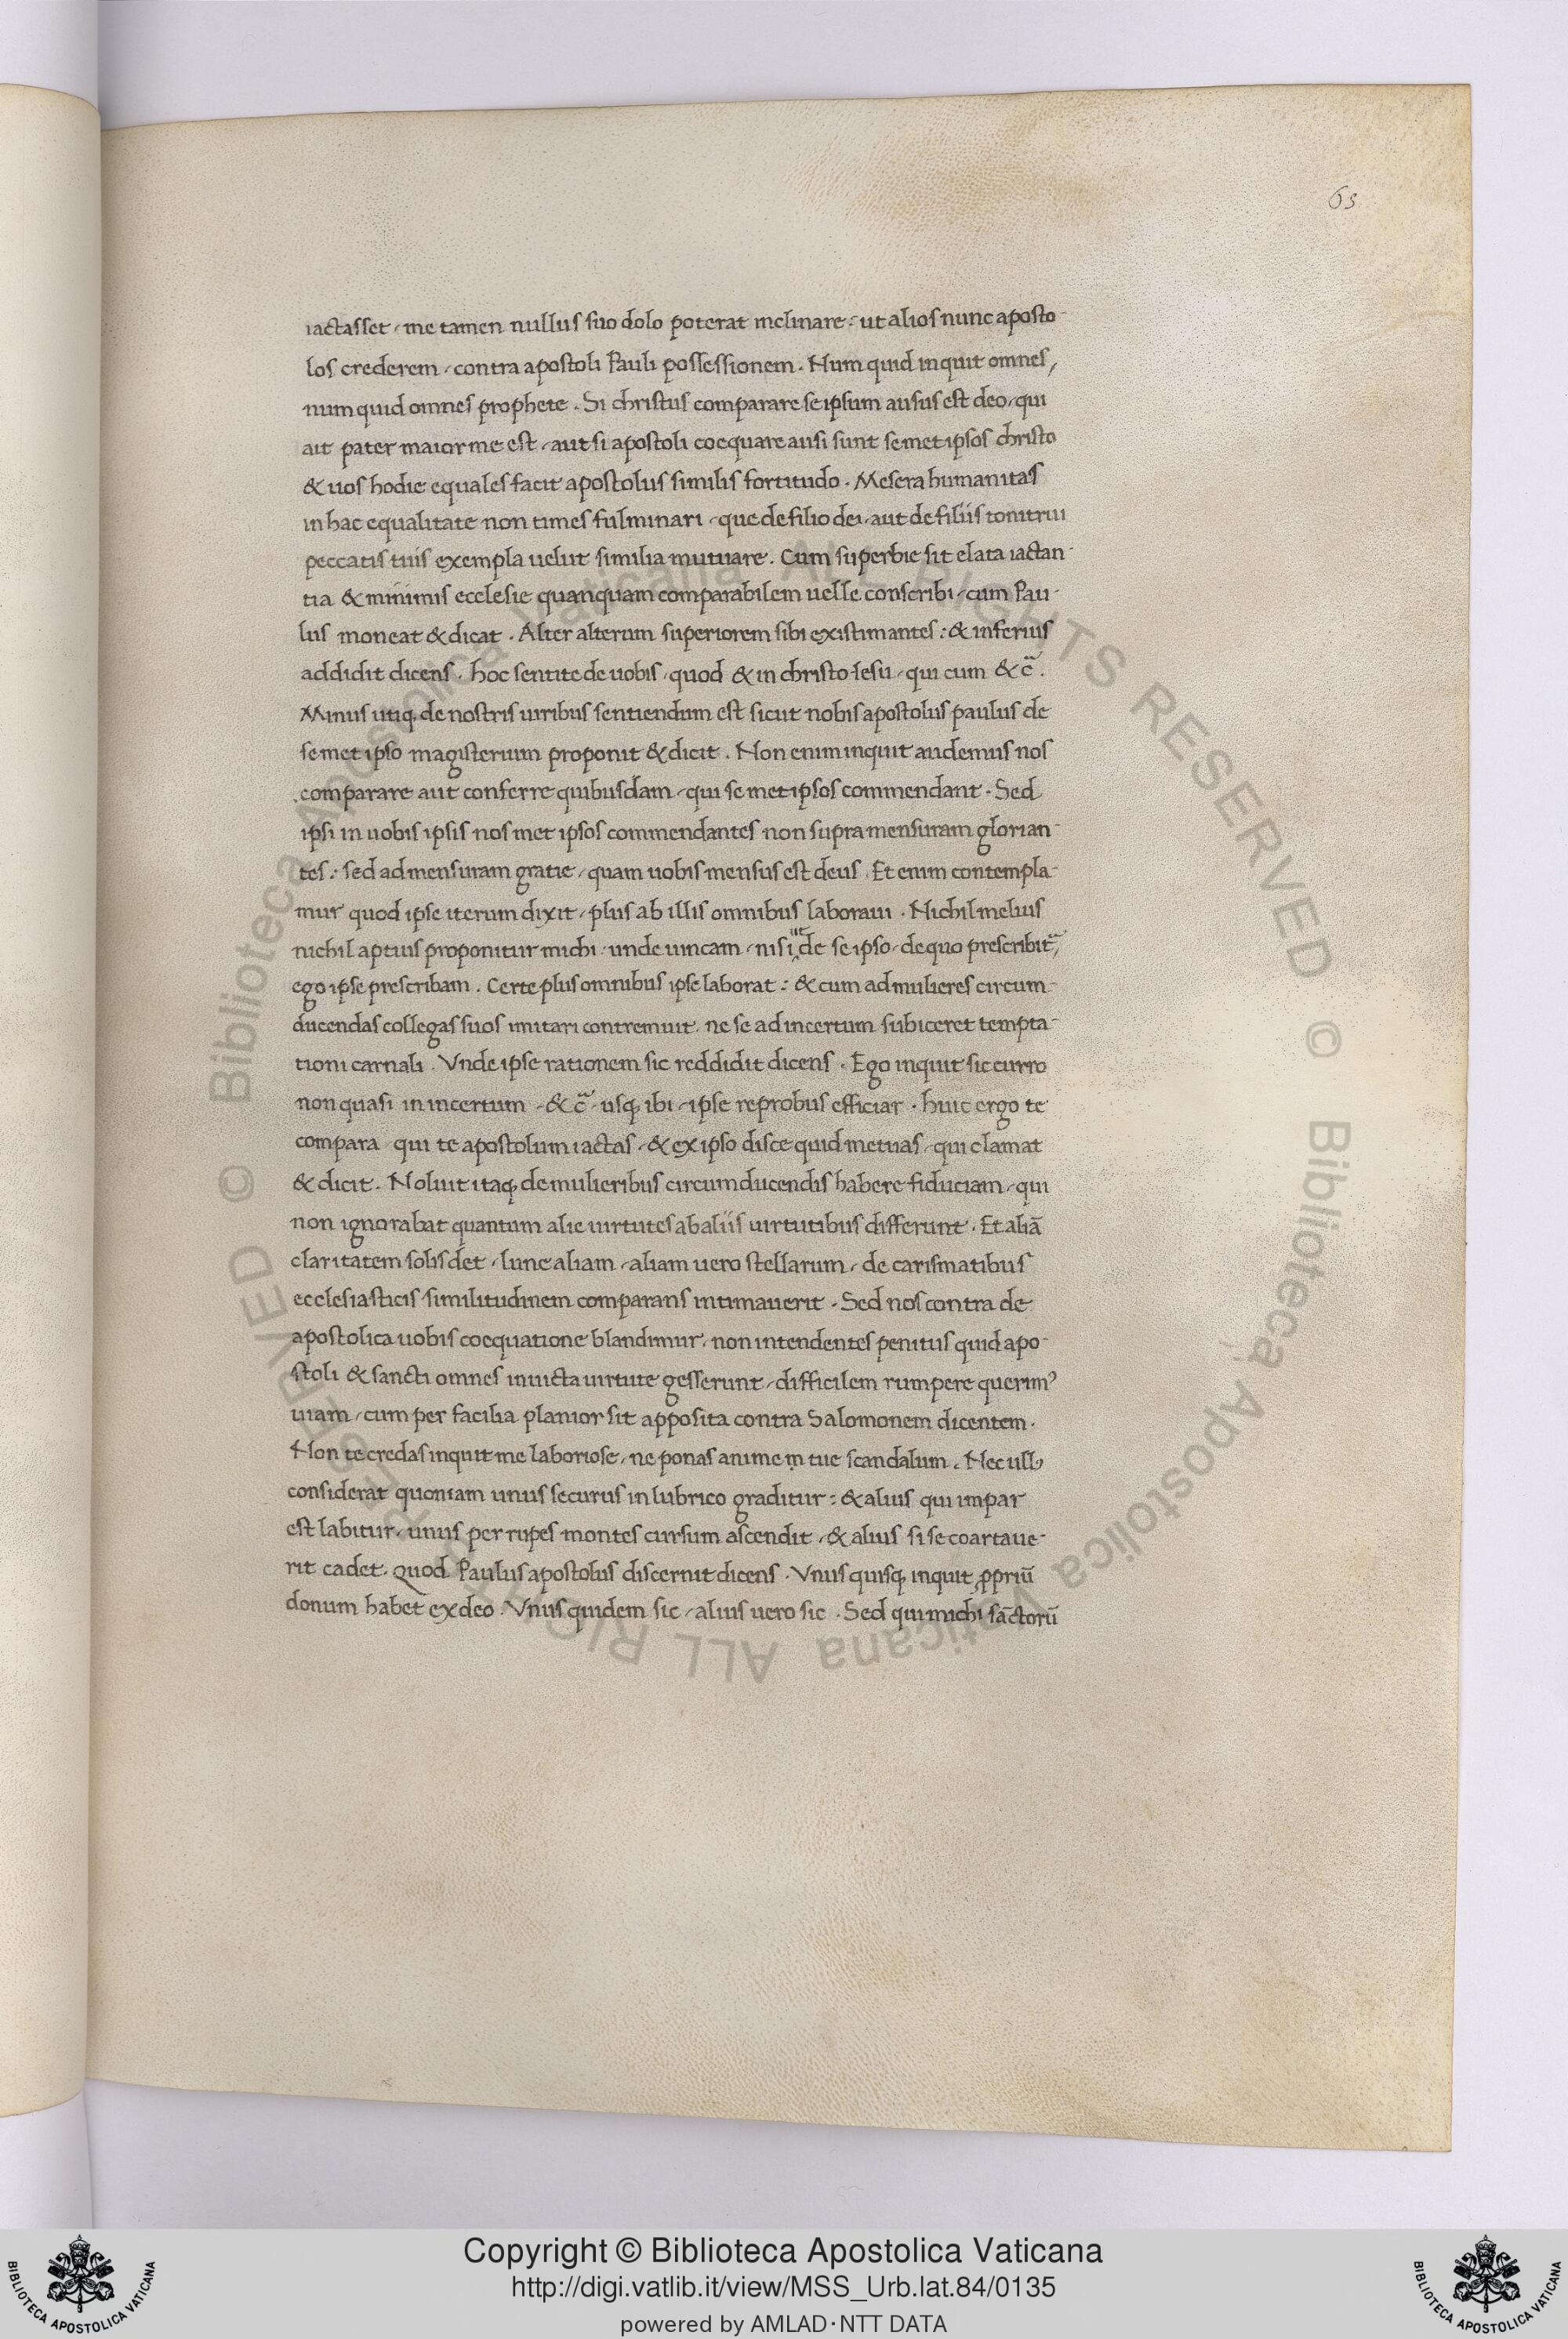 63
iactasset, me tamen nullus suo dolo poterat inclinare: ut alios nunc aposto-
los crederem, contra apostoli Pauli possessionem. Num quid inquit omnes,
num quid omnes prophete. Si christus comparare se ipsum ausus est deo, qui
ait pater maior me est, aut si apostoli coequare ausi sunt semet ipsos christo
& uos hodie equales facit apostolus similis fortitudo. Mesera humanitas
in hac equalitate non times fulminari, que de filio dei, aut de filiis tonitrui
peccatis tuis exempla uelut similia mutuare. Cum superbie sit elata iactan-
tia & minimis ecclesie quanquam comparabilem uelle conscribi, cum Pau-
lus moneat & dicat. Alter alterum superiorem sibi existimantes: & inferius
addidit dicens. hoc sentite de uobis, quod & in christo Iesu, qui cum & c̄.
Minus utiq; de nostris uiribus sentiendum est sicut nobis apostolus paulus de
semet ipso magisterium proponit & dicit. Non enim inquit audemus nos
comparare aut conferre quibusdam, qui se met ipsos commendant. Sed
ipsi in uobis ipsis nos met ipsos commendantes non supra mensuram glorian-
tes: sed ad mensuram gratie, quam uobis mensus est deus. Et enim contempla-
mur quod ipse iterum dixit, plus ab illis omnibus laboraui. Nichil melius
nichil aptius proponitur michi, unde uincam, nisi ut de se ipso, de quo prescribit̄,
ego ipse prescribam. Certe plus omnibus ipse laborat: & cum ad mulieres circum-
ducendas collegas suos imitari contremuit, ne se ad incertum subiceret tempta-
tioni carnali. Vnde ipse rationem sic reddidit dicens. Ego inquit sic curro
non quasi in incertum, & c̄, usq; ibi, ipse reprobus efficiar. huic ergo te
compara qui te apostolum iactas, & ex ipso disce quid metuas, qui clamat
& dicit. Noluit itaq; de mulieribus circumducendis habere fiduciam, qui
non ignorabat quantum alie uirtutes ab aliis uirtutibus differunt. Et aliā
claritatem solis det, lune aliam, aliam uero stellarum, de carismatibus
ecclesiasticis similitudinem comparans intimauerit. Sed nos contra de
apostolica uobis coequatione blandimur, non intendentes penitus quid apo-
stoli & sancti omnes inuicta uirtute gesserunt, difficilem rumpere querimꝰ
uiam, cum per facilia planior sit apposita contra Salomonem dicentem.
Non te credas inquit me laboriose, ne ponas anime in tue scandalum. Nec ull
considerat quoniam unus securus in lubrico graditur: & alius qui impar
est labitur, unus per rupes montes cursum ascendit, & alius si se coartaue-
rit cadet. Quod Paulus apostolus discernit dicens. Vnus quisq; inquit ꝓpriū
donum habet ex deo. Vnus quidem sic, alius uero sic. Sed qui michi sāctorū
© Biblioteca Apostolica Vaticana ALL RIGHTS RESERVED
© Biblioteca Apostolica Vaticana ALL RIGHTS RESERVED
Copyright © Biblioteca Apostolica Vaticana
http://digi.vatlib.it/view/MSS_Urb.lat.84/0135
powered by AMLAD·NTT DATA
BIBLIOTECA APOSTOLICA VATICANA
BIBLIOTECA APOSTOLICA VATICANA